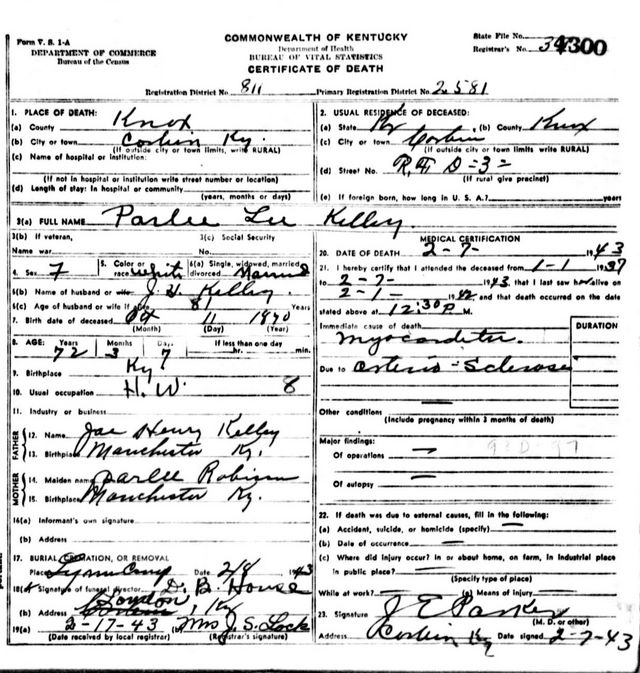 Form V. S. 1-A
DEPARTMENT OF COMMERCE
Bureau of the Census
COMMONWEALTH OF KENTUCKY
Department of Health
BUREAU OF VITAL STATISTICS
CERTIFICATE OF DEATH
State File No.
Registrar's No. 34300
Registration District No. 811 Primary Registration District No. 2581
1. PLACE OF DEATH:
(a) County Knox
(b) City or town Corbin Ky.
(If outside city or town limits, write RURAL)
(c) Name of hospital or institution:
(If not in hospital or institution write street number or location)
(d) Length of stay: In hospital or community
(years, months or days)
2. USUAL RESIDENCE OF DECEASED:
(a) State Ky (b) County Knox
(c) City or town Corbin
(If outside city or town limits write RURAL)
(d) Street No. R.F.D=3=
(If rural give precinct)
(e) If foreign born, how long in U. S. A.? years
3(a) FULL NAME Parlee Lee Kelley.
3(b) If veteran,
Name war
3(c) Social Security
No.
4. Sex F
5. Color or race White
6(a) Single, widowed, married divorced Married
6(b) Name of husband or wife J. H. Kelley
6(c) Age of husband or wife if 81 Years
7. Birth date of deceased Oct 11 1870
(Month) (Day) (Year)
8. AGE: Years Months Days If less than one day
72 3 7 hr. min.
9. Birthplace Ky
10. Usual occupation H.W. 8
11. Industry or business
FATHER
12. Name Jae Henry Kelley
13. Birthplace Manchester Ky.
MOTHER
14. Maiden name Parlee Robinson
15. Birthplace Manchester Ky.
16(a) Informant's own signature
(b) Address
17. BURIAL, CREMATION, OR REMOVAL
Place Lynn Camp Date 2/8 1943
18(a) Signature of funeral director D. B. House
(b) Address London, Ky
19(a) 2-17-43 Mrs J. S. Lock
(Date received by local registrar) (Registrar's signature)
MEDICAL CERTIFICATION
20. DATE OF DEATH 2-7- 1943
21. I hereby certify that I attended the deceased from 1-1 1937
to 2-7- 1943, that I last saw her alive on
2-1- 1942 and that death occurred on the date
stated above at 12:30 P M.
Immediate cause of death
Myocarditis.
DURATION
Due to Arterio-Sclerosis
Other conditions
(Include pregnancy within 3 months of death)
Major findings:
Of operations
Of autopsy
22. If death was due to external causes, fill in the following:
(a) Accident, suicide, or homicide (specify)
(b) Date of occurrence
(c) Where did injury occur? In or about home, on farm, in industrial place
in public place?
(Specify type of place)
While at work? (e) Means of injury
23. Signature J E Parker
(M. D. or other)
Address Corbin Ky Date signed 2-7-43